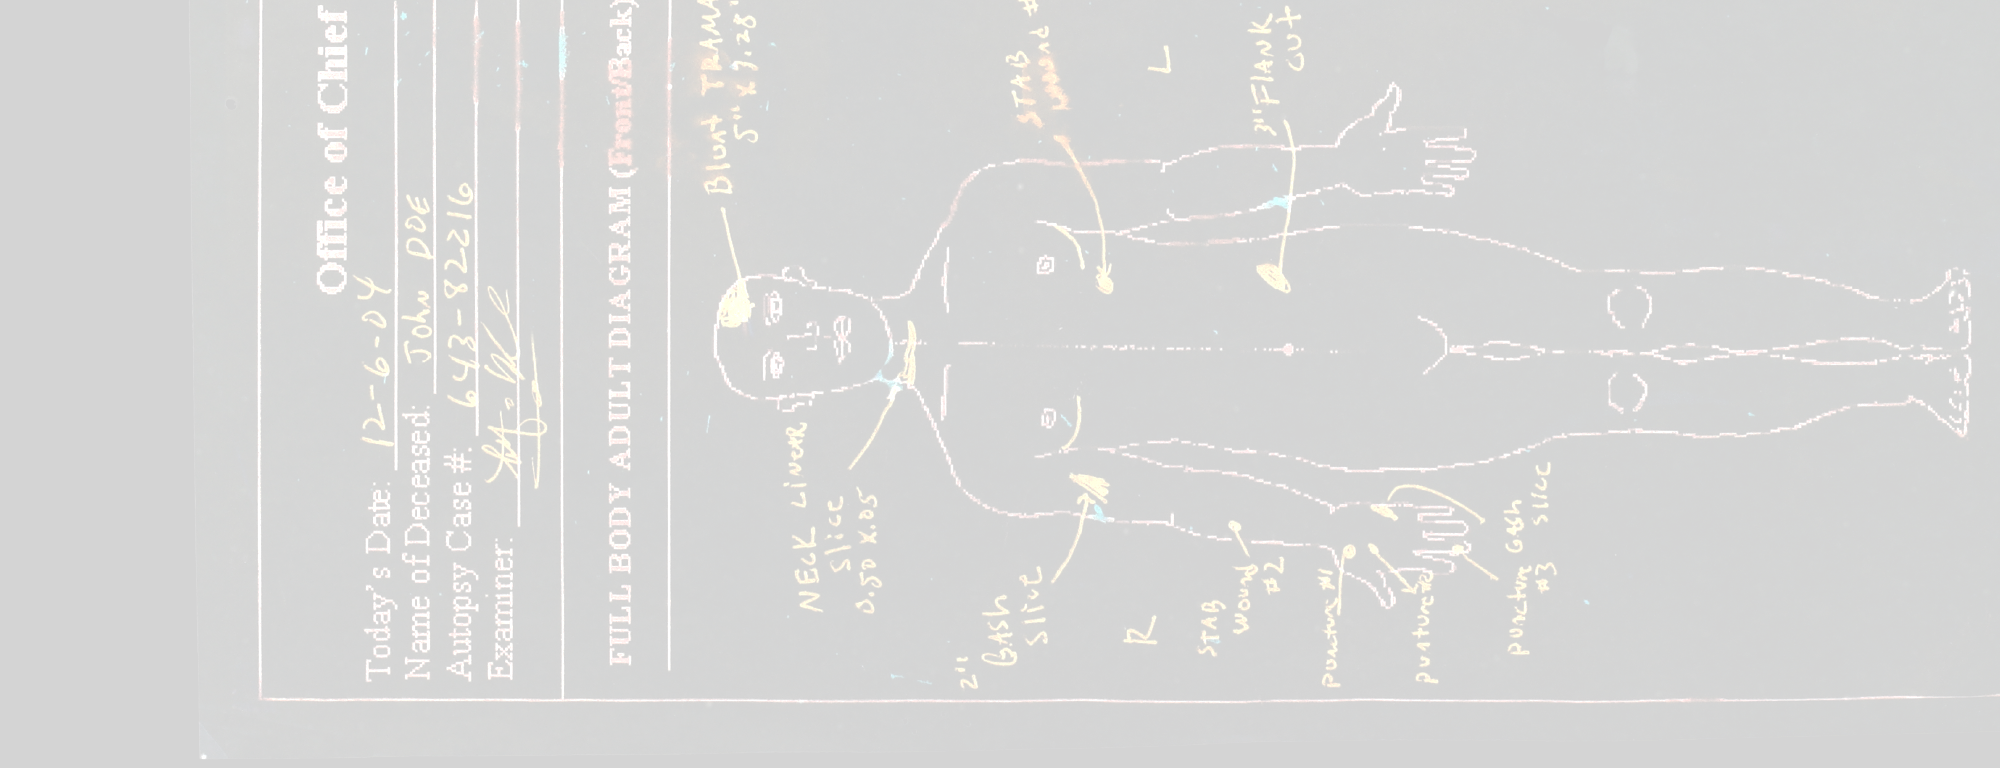 Office of Chief
Today's Date: 12-6-04
Name of Deceased: John DOE
Autopsy Case #: 643-82216
Examiner:
FULL BODY ADULT DIAGRAM (Front/Back)
Blunt TRAMA
5" X 7.28"
STAB
wound #
L
3" FlANK
cut
NECK LineAR
Slice
0.50 X.05
2"
GASh
Slice
R
STAB
Wound
#2
puncture #1
puncture
puncture GASh
#3 slice